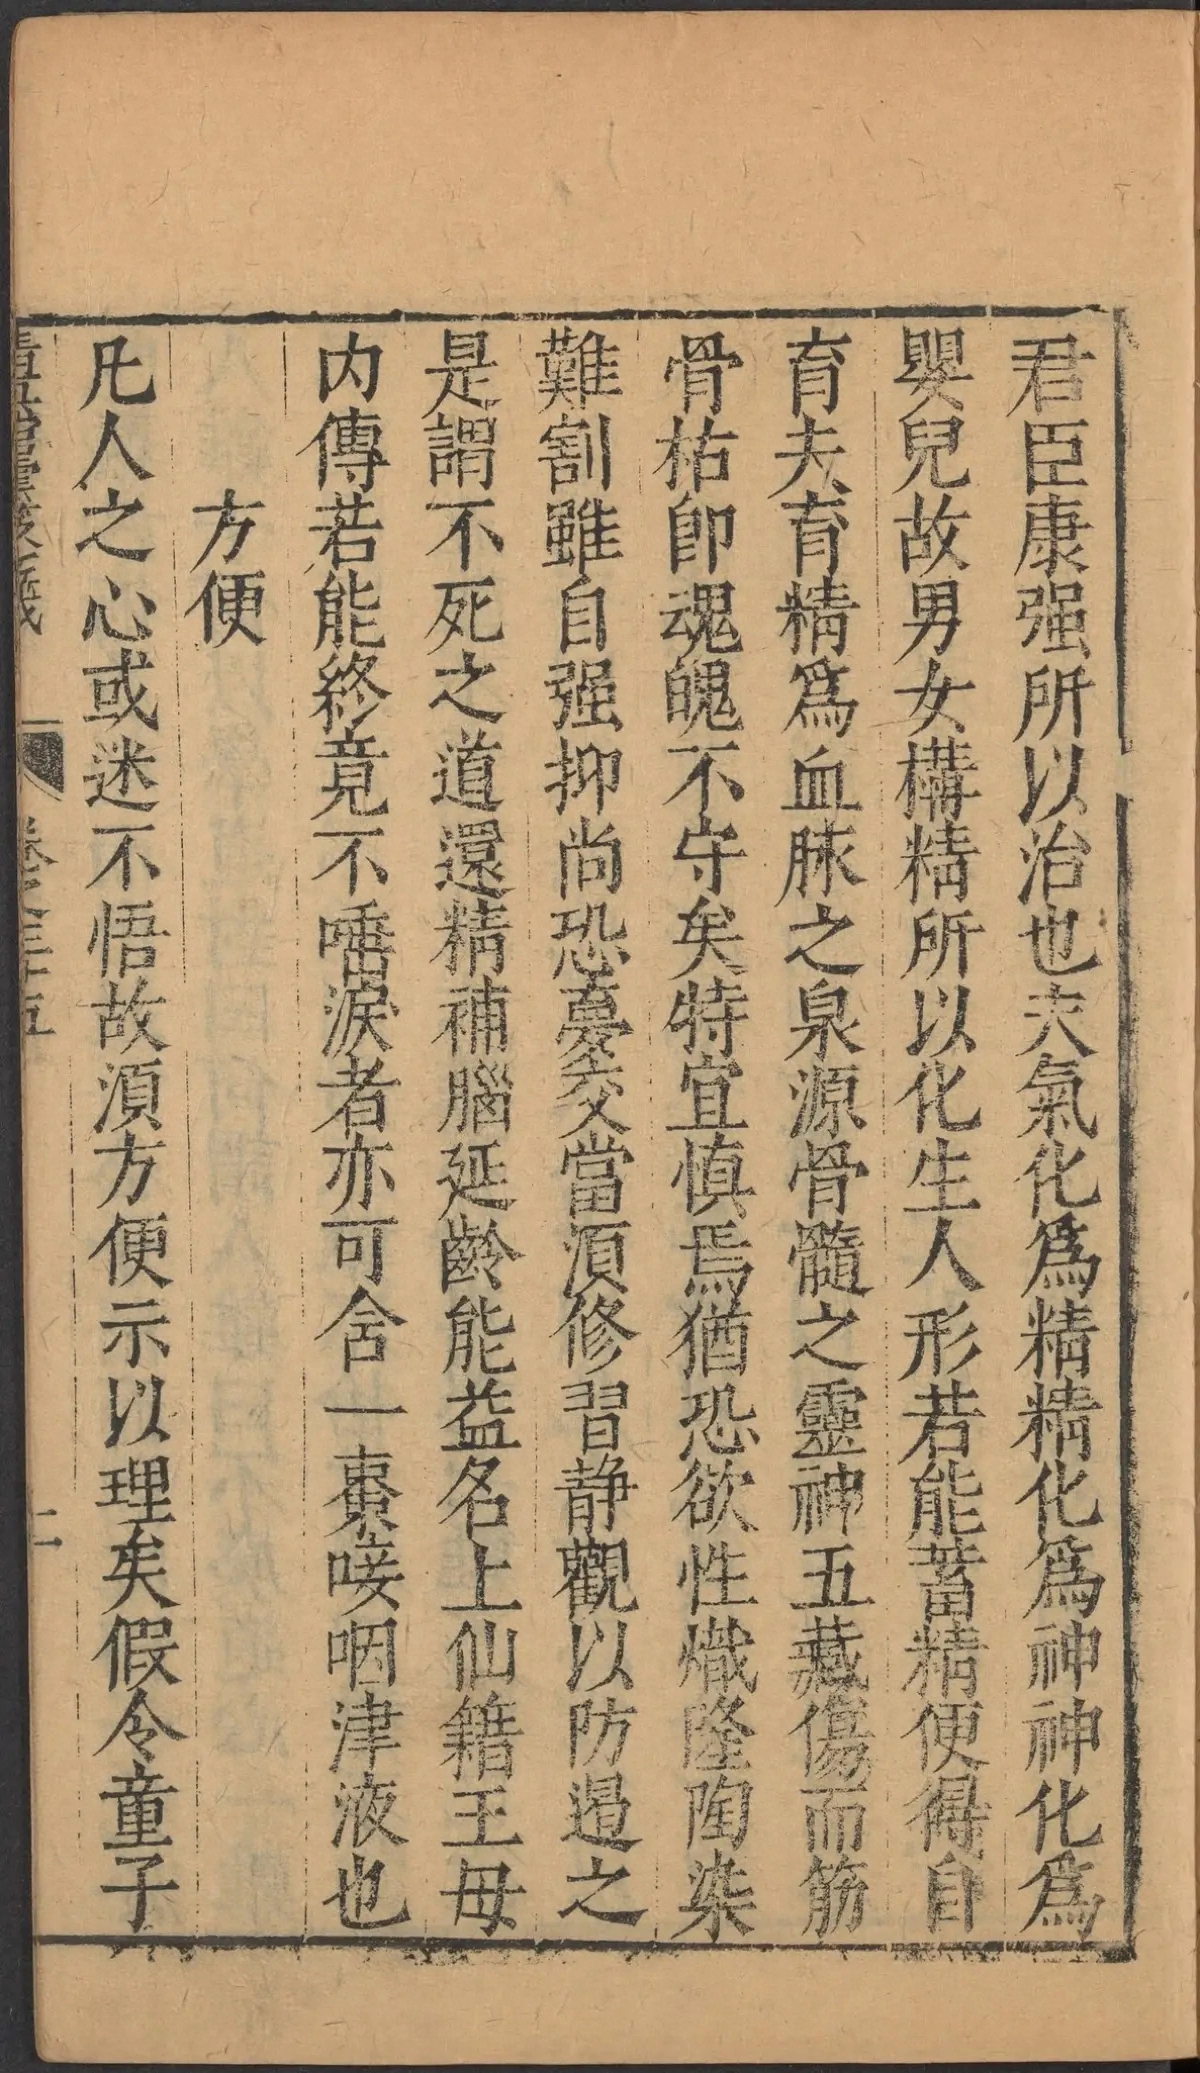 君臣康强所以治也夫氣化爲精精化爲神神化爲
嬰兒故男女構精所以化生人形若能蓄精便得自
育夫育精爲血脉之泉源骨髓之靈神五藏傷而筋
骨枯卽魂魄不守矣特宜慎焉猶恐欲性熾隆陶染
難割雖自强抑尚恐夢交當須修習静觀以防遏之
是謂不死之道還精補腦延齡能益名上仙籍王母
内傳若能終竟不唾涙者亦可含一棗唼咽津液也
方便
凡人之心或迷不悟故須方便示以理矣假令童子
卷之三十五
二